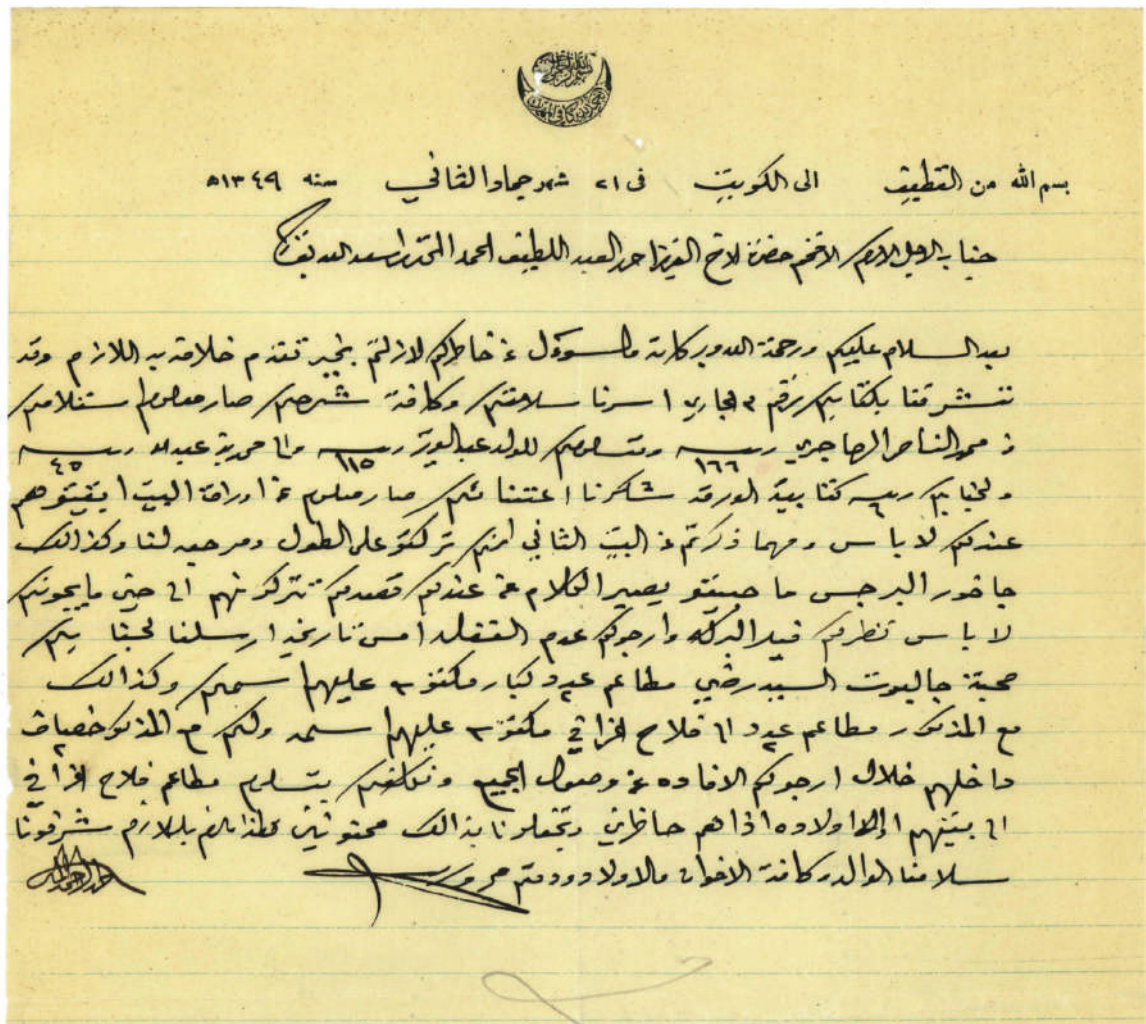 بسم الله من القطيف الى الكويت فى ٢١ شهر جماد الثاني سنه ١٣٤٩ھ
جناب الاجل الاكرم الافخم حضرة الاخ العزيز احمد العبد اللطيف الحمد المحترم
بعد السلام عليكم ورحمة الله وبركاته والسؤول عن خاطركم لازلتم بخير تقدم خلافه به اللازم وقد
تشرفنا بكتابكم رقم ٣ الجاري اسرنا سلامتكم وكافة شرحكم صار معلوم استلامكم
من محمد الناصر الهاجري ربيه ١٦٦ وتسليمكم للولد عبد العزيز ربيه ١١٥ والى عبد الله ربيه ٤٥
ولجنابكم ربيه ٦ كتابية الورقه شكرنا اعتنائكم صار معلوم عن اوراق البيت ابقيتوهم
عندكم لا باس ومهما ذكرتم عن البيت الثاني انكم تركتو على الطول ومرجعه لنا وكذالك
جاخور البرجس ما حبيتو يصير الكلام من عندكم قصدكم تتركونهم الى حتى ما يجونكم
لا باس نظركم فيه البركه وارجوكم عدم الغفله امس تاريخه ارسلنا لجنابكم
صحبة جالبوت السيد رضي مطاعم عدد ٢ كبار مكتوب عليهم اسمكم وكذالك
مع المذكور مطاعم عدد ٢ الى فلاح الخرافي مكتوب عليهم اسمه ولكم مع المذكور خصاف ٢
داخلهم خلال ارجوكم الافاده عن وصول الجميع ونكلفكم بتسليم مطاعم فلاح الخرافي
الى بيتهم اولاده اذا هم حاظرين وتجعلونا بذالك ممنونين هذا مالزم بللازم شرفونا
سلامنا الوالد وكافة الاخوان والاولاد ودمتم محروسين